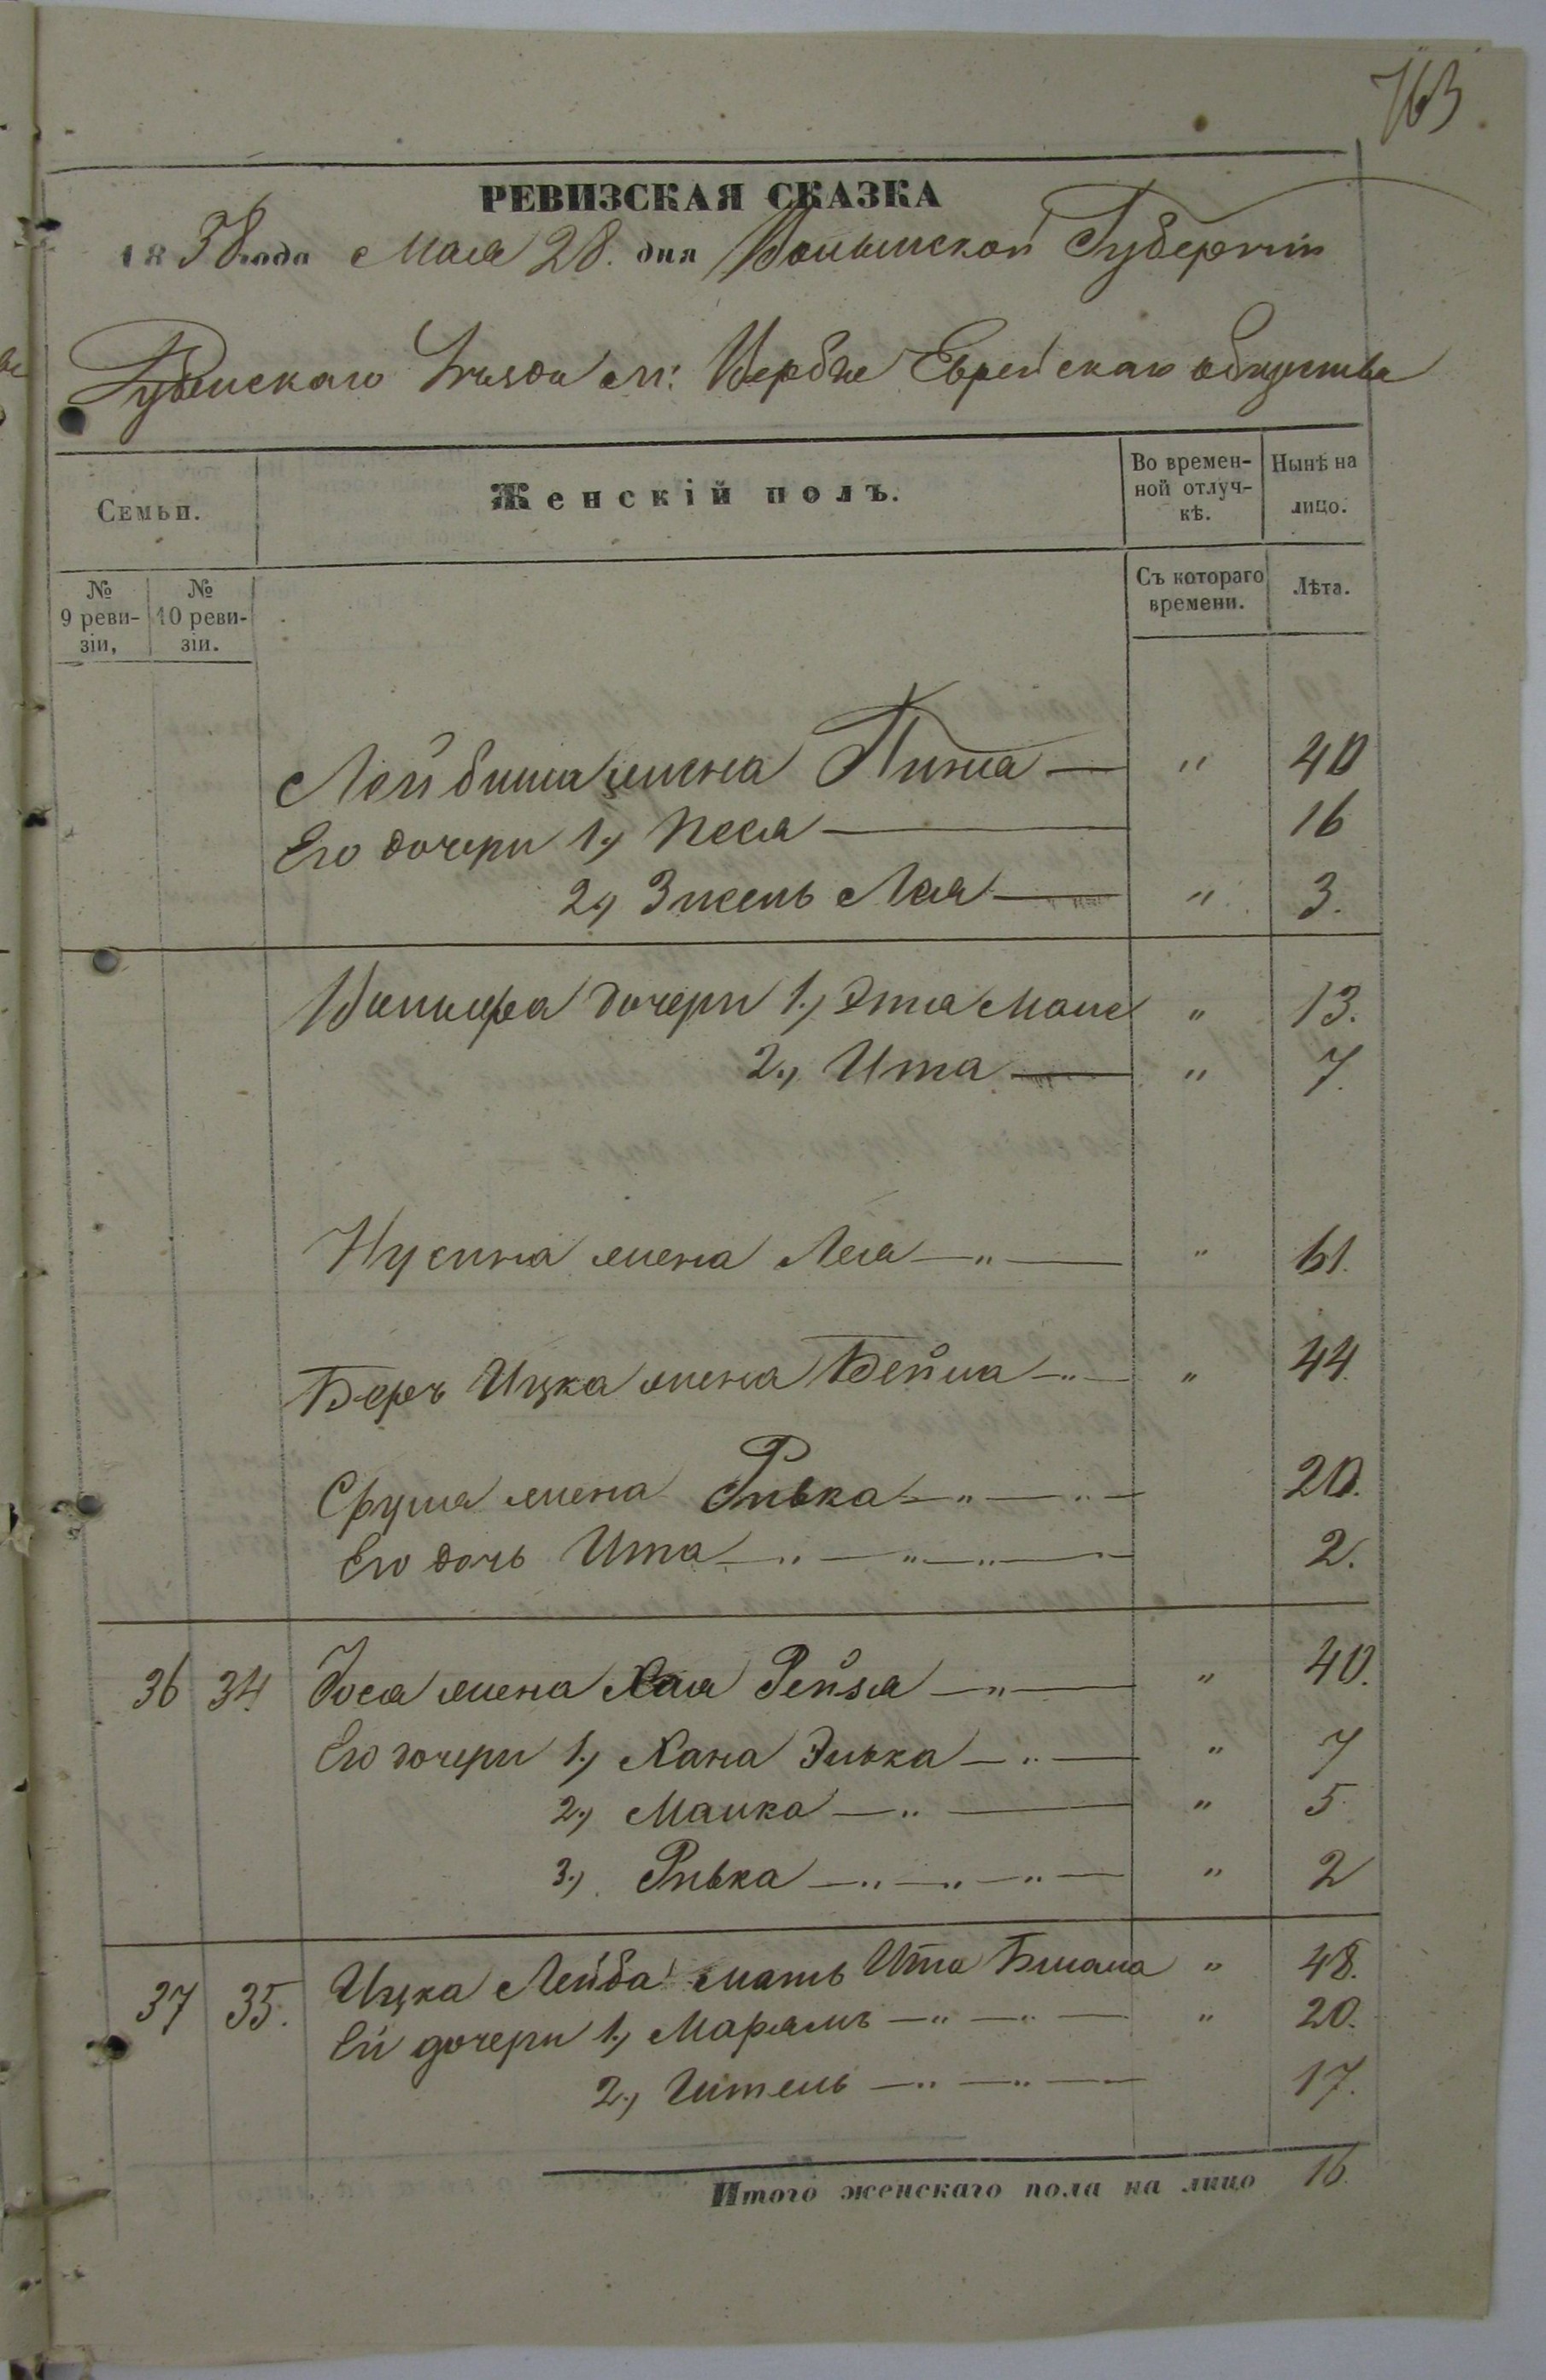 763
РЕВИЗСКАЯ СКАЗКА
1858 года Мая 28. дня Волынской Губерніи
Дубенскаго Уѣзда м: Вербы Еврейскаго общества
Семьи.
Женскій полъ.
Во времен-
ной отлуч-
кѣ.
Нынѣ на
лицо.
№
9 реви-
зіи,
№
10 реви-
зіи.
Съ котораго
времени.
Лѣта.
Лейбиша жена " 40
Его дочери 1.) Песя 16
2.) Лея " 3.
дочери 1.) Эта " 13.
2.) Ита " 7.
Нусина жена Лея " 61.
Беръ Ицка жена Бейла " 44.
Сруля жена Ривка 20.
Его дочь Ита 2.
36 34. Іося жена Хая Рейзя " 40.
Его дочери 1.) Хана Элька " 7
2.) Малка " 5.
3.) Ривка " 2
37 35. Ицка Лейба мать Ита " 48.
Ей дочери 1.) Марямъ " 20.
2.) Гитель 17.
Итого женскаго пола на лицо 16.